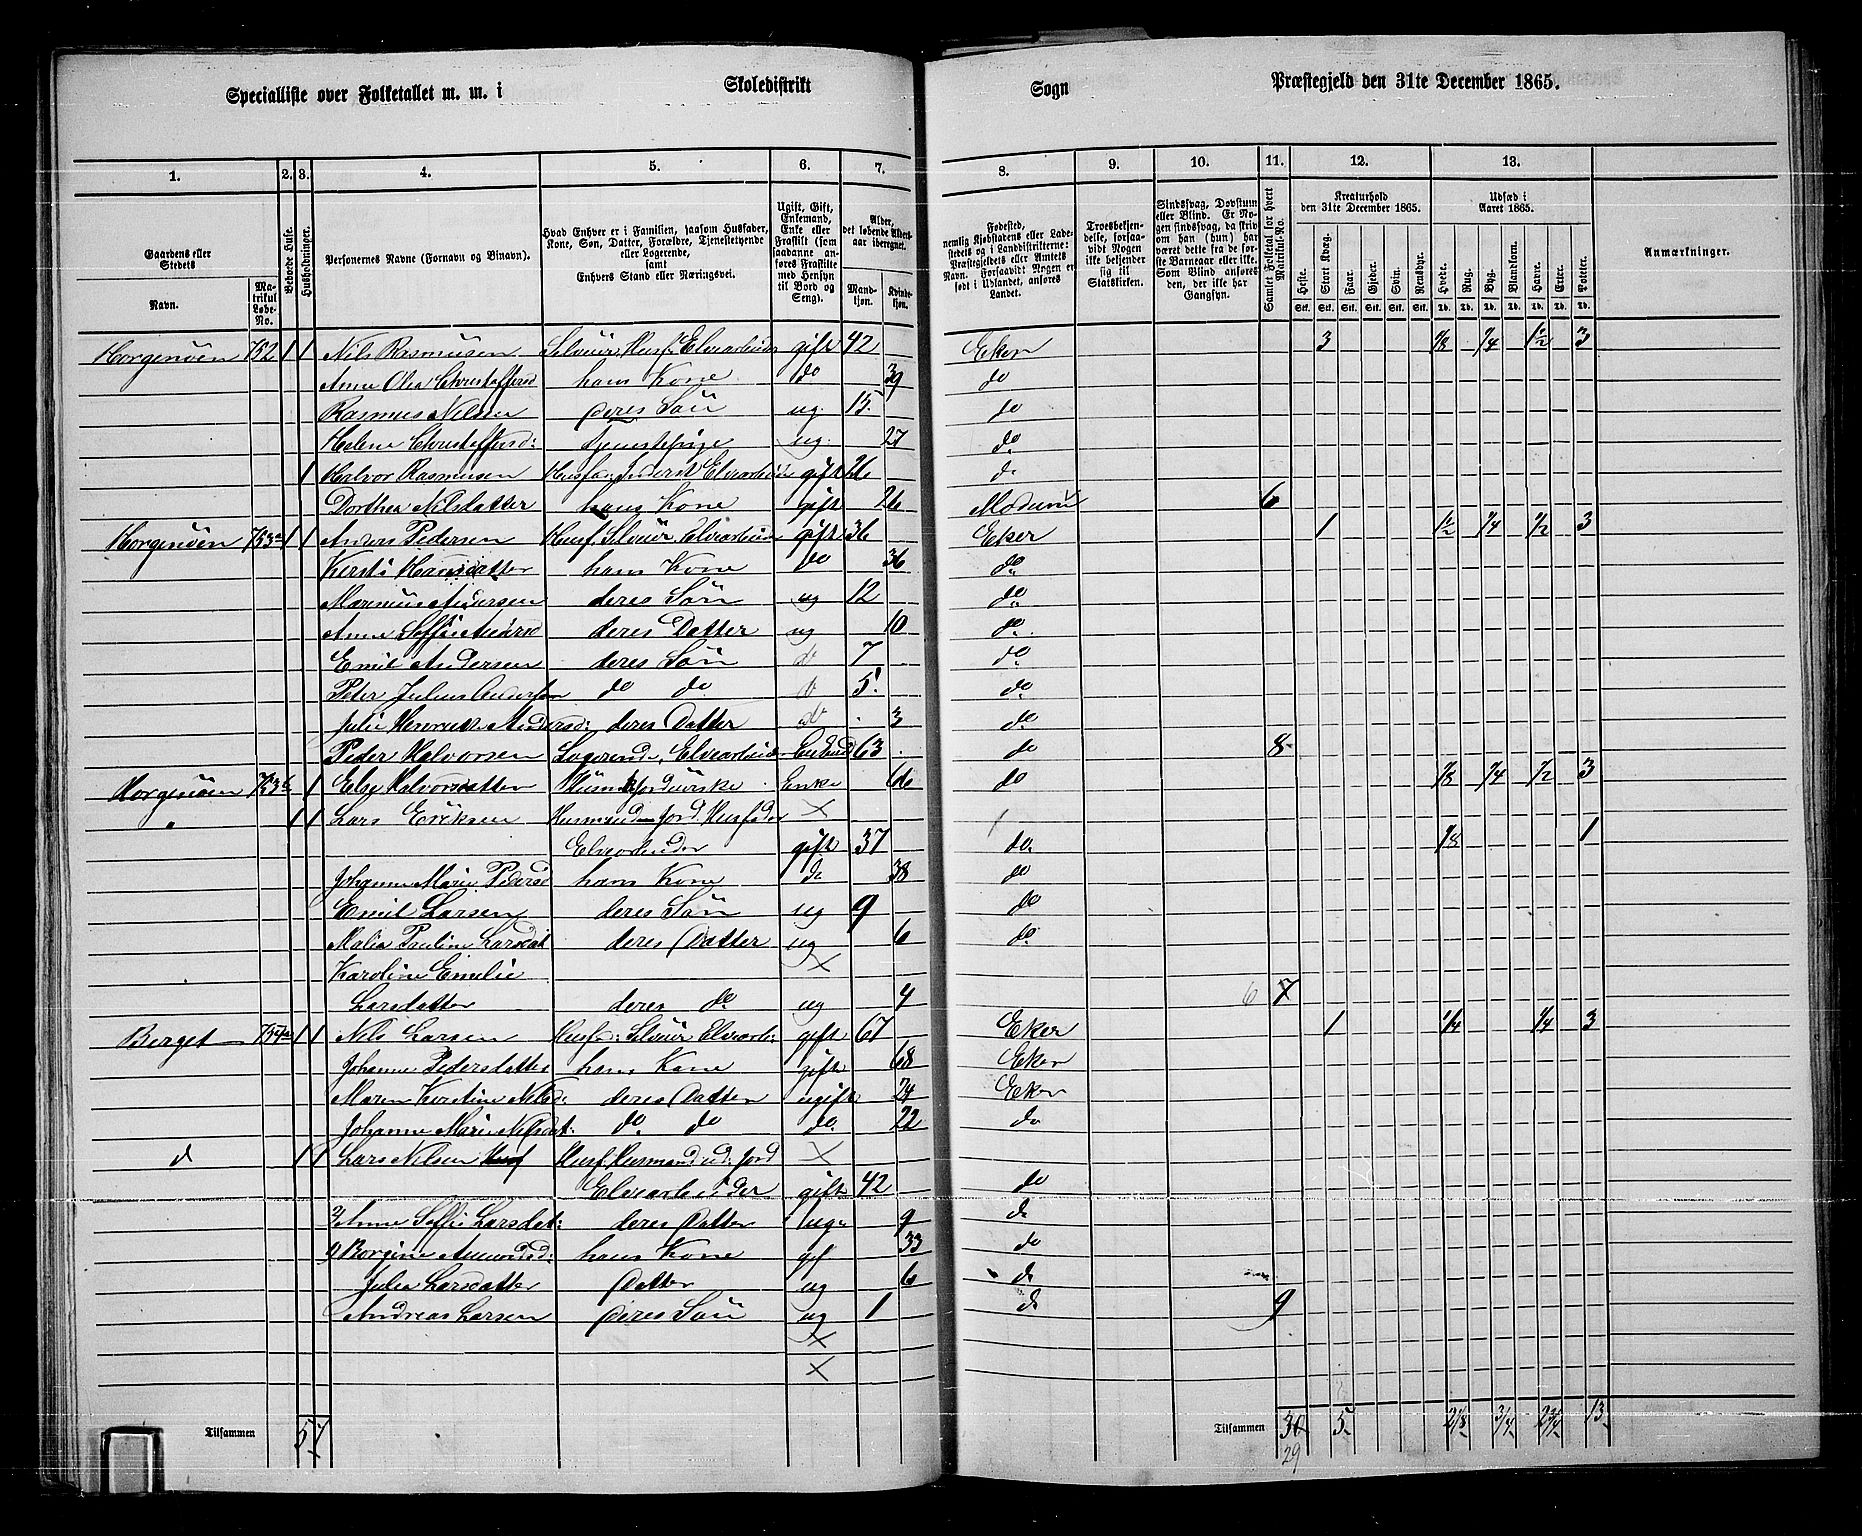 Specialliste over Folketallet m. m. i Skoledistrikt Sogn Præstegjeld den 31te December 1865.
1. 2. 3. 4. 5. 6. 7. 8. 9. 10. 11. 12. 13.
Gaardens eller Stedets
Navn.
Matrikul Løbe-No.
Beboede Huse.
Husholdninger.
Personernes Navne (Fornavn og Binavn).
Hvad Enhver er i Familien, saasom Husfader, Kone, Søn, Datter, Forældre, Tjenestetyende eller Logerende, samt Enhvers Stand eller Næringsvei.
Ugift, Gift, Enkemand, Enke eller Fraskilt (som saadanne anføres Fraskilte med Hensyn til Bord og Seng).
Alder, det løbende Aldersaar iberegnet.
Mandkjøn. Kvindekjøn.
Fødested, nemlig Kjøbstadens eller Ladestedets og i Landdistrikterne: Præstegjeldets eller Amtets Navn. Forsaavidt Nogen er født i Udlandet, anføres Landet.
Troesbekjendelse, forsaavidt Nogen ikke bekjender sig til Statskirken.
Sindssvag, Døvstum eller Blind. Er Nogen sindssvag, da skrives om han (hun) har været dette fra de første Barneaar eller ikke. Som Blind anføres den, der ikke har Gangsyn.
Samlet Folketal for hvert Matrikul-No.
Kreaturhold den 31te December 1865.
Heste. Stort Kvæg. Faar. Gjeder. Svin. Rensdyr.
Udsæd i Aaret 1865.
Hvede. Rug. Byg. Blandkorn. Havre. Erter. Poteter.
Anmærkninger.
Horgenöen 752 1 1 Nils Rasmusen Selveier Husf: Elvearbeider gift 42 Eker 3 1/8 1/4 1½ 3
Anne Olea Christoffersd hans Kone do 39 do
Rasmus Nilsen deres Sön ug. 15. do
Helene Christoffersd: Tjenestepige ug. 27 do
1 Halvor Rasmusen gift 26 do
Dorthea Nilsdatter hans Kone gift 26 Modum 6
Horgenöen 753a 1 1 Anders Pedersen Husf. Selveier, Elvearbeider gift 36 Eker 1 1/2 1/4 1/2 3
Kirsti Hansdatter hans Kone do 36 do
Marinius Andersen deres Sön ug 12 do
Anne Soffie Andersd deres Datter ug 10 do
Emil Andersen deres Sön do 7 do
Peter Julius Andersen do do do 5. do
Julie Andersd: deres Datter do 3 do
Peder Halvorsen Logerende, Elvearbeider Enkem 63 do 8
Horgenöen 753b 1 Else Halvorsdatter Enke 66 do 1/8 1/4 1/2 3
" 1 1 Lars Eriksen Husmand Jord Husfader ×
Elvearbeider gift 37 do 1/8 1
Johanne Marie Pedersd hans Kone do 38 do
Emil Larsen deres Sön ug 9 do
Malia Pauline Larsdat deres Datter ug 6 do
Karoline Emelie ×
Larsdatter deres do ug 4 6 7
Berget 754a 1 1 Nils Larsen Husfad: Selveier Elvearbei: gift 67 Eker 1 1/4 1/4 3
Johanne Pedersdatter hans Kone gift 68 Eker
Maren Kirstine Nilsd: deres Datter ugift 24 Eker
Johanne Marie Nilsdat: do do do 22 do
do 1 1 Lars Nilsen Husf Husf. Husmand ud: Jord ×
Elvearbeider gift 42 do
3 Anne Soffie Larsdat: deres Datter ug. 9 do
Borgine Amundsd: hans Kone gf 33 do
Julia Larsdatter Datter ug 6 do
Andreas Larsen deres Sön ug 1 do 9
×
×
Tilsammen 5 7 Tilsammen 30 5 2⅛ 3/4 2¾ 13
29